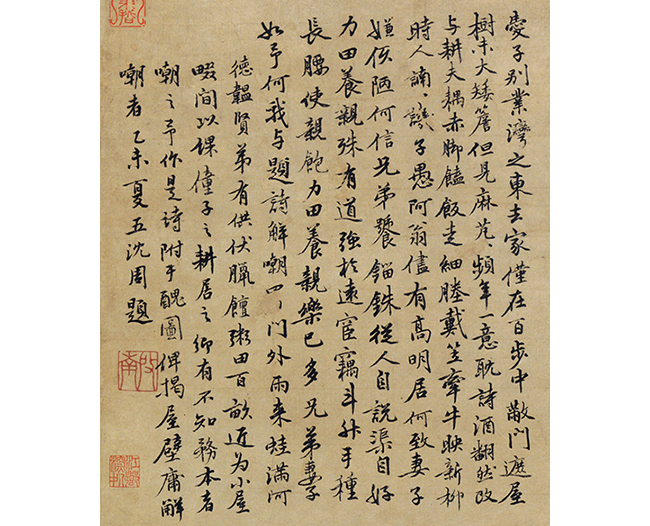 愛子別業灣之東去家僅在百步中敞門遮屋
樹未大矮簷但見麻芃頻年一意耽詩酒翻然改
与耕夫耦赤脚饁飯走細塍戴笠牽牛映新柳
時人譏子愚阿翁儘有高明居何致妻子
嫌陋何信兄弟錙銖從人自說渠自好
力田養親殊有道強於遠宦竊斗升手種
長腰使親飽力田養親樂已多兄弟妻子
如予何我与題詩解嘲門外雨来蛙滿河
德韞賢弟有供伏臘饘粥田百畝近为小屋
畷間以課僮子之耕居之鄉有不知務本者
嘲之予作是詩附于醜圖俾揭屋壁庸解
嘲者乙未夏五沈周題